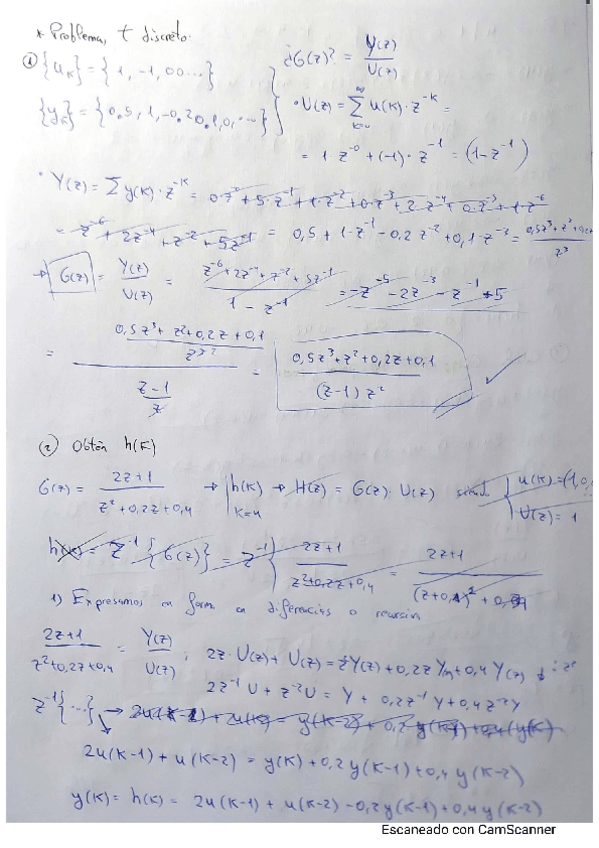 * Problema, t discreto.
① {u_K} = {1, -1, 00...} ¿G(z)? = Y(z)/U(z)
{y_K} = {0.5, 1, -0.2 0.1, 0, ...} • U(z) = ∞ Σ K=0 u(K)·z^-K =
= 1·z^-0 + (-1)·z^-1 = (1-z^-1)
• Y(z) = Σ y(K)·z^-K = 0·z^0 + 5·z^-1 + 1·z^-2 + 0·z^-3 + 2 z^-4 + 0 z^-5 + 1·z^-6
= z^-6 + 2z^-4 + z^-2 + 5z^-1 = 0,5 + 1·z^-1 - 0,2 z^-2 + 0,1·z^-3 = /z^3
→ G(z) = Y(z)/U(z) = z^-6 + 2z^-4 + z^-2 + 5z^-1 / 1 - z^-1 = -z^-5 - 2z^-3 - z^-1 + 5
= 0,5z^3 + z^2 + 0,2z + 0,1 / z^3 / z-1 / z = 0,5z^3 + z^2 + 0,2z + 0,1 / (z-1) z^2 ✓
② Obtén h(K)
G(z) = 2z+1 / z^2+0,2z+0,4 → h(K) K=4 → H(z) = G(z)·U(z) siendo { u(K)=(1,0, U(z)=1
h(K) = z^-1 {G(z)} = z^-1 { 2z+1 / z^2+0,2z+0,4 = 2z+1 / (z+0,1)^2 + 0,
1) Expresamos en form en diferencias o recursiva
2z+1 / z^2+0,2z+0,4 = Y(z)/U(z) ; 2z·U(z) + U(z) = z^2Y(z) + 0,2z Y(z) + 0,4 Y(z) ↓ : z^2
2z^-1 U + z^-2 U = Y + 0,2z^-1 Y + 0,4 z^-2 Y
z^-1 {...} → 2u(K-1) + u(K) = y(K-2) + 0,2 y(K-1) + 0,4 y(K)
2u(K-1) + u(K-2) = y(K) + 0,2 y(K-1) + 0,4 y(K-2)
y(K) = h(K) = 2u(K-1) + u(K-2) - 0,2y(K-1) + 0,4 y(K-2)
Escaneado con CamScanner